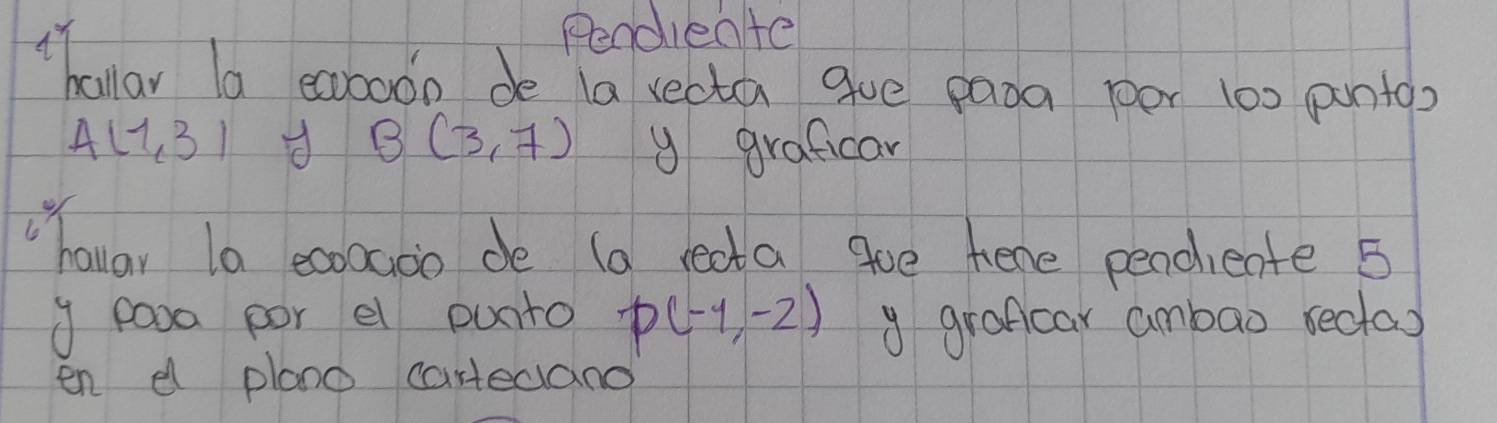 Pendiente
1º hallar la ecuación de la recta que pasa por los puntos
A(1,3) y B (3,7) y graficar
hallar la ecuacio de la recta que tiene pendiente 5
y pasa por el punto p(-1,-2) y graficar ambas rectas
en el plano cartesiano